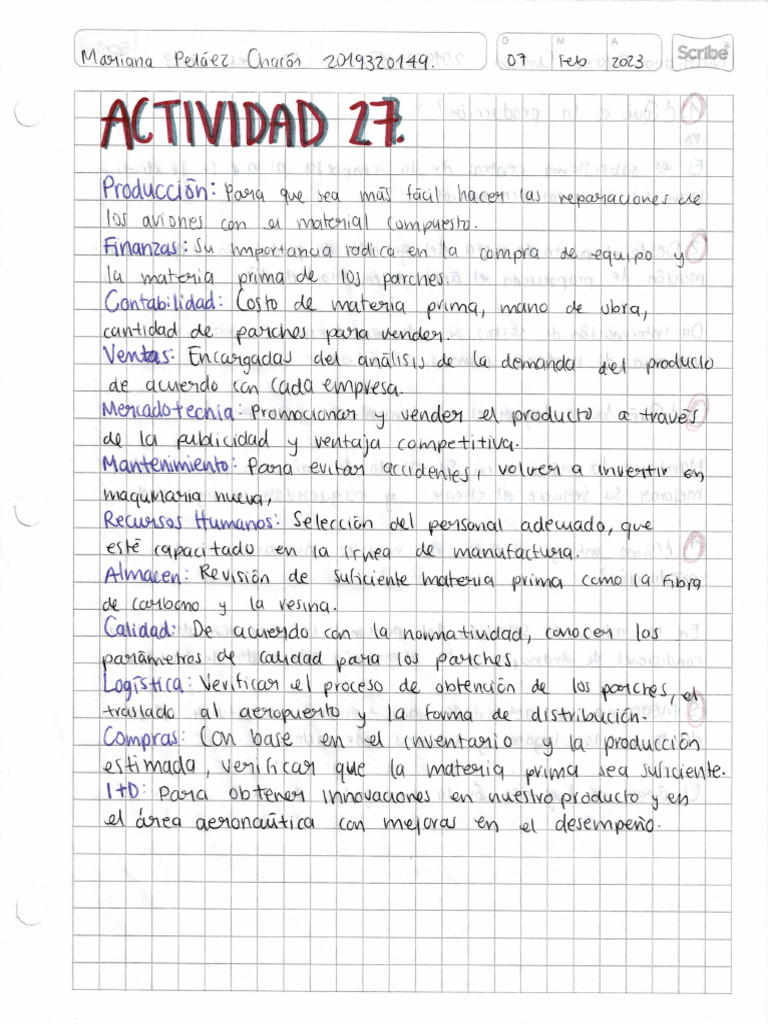 Mariana Peláez Chacón 2019320149.
D M A
07 Feb 2023
Scribe
ACTIVIDAD 27.
Producción: Para que sea más fácil hacer las reparaciones de
los aviones con el material compuesto.
Finanzas: Su importancia radica en la compra de equipo y
la materia prima de los parches.
Contabilidad: Costo de materia prima, mano de obra,
cantidad de parches para vender.
Ventas: Encargadas del análisis de la demanda del producto
de acuerdo con cada empresa.
Mercadotecnia: Promocionar y vender el producto a través
de la publicidad y ventaja competitiva.
Mantenimiento: Para evitar accidentes, volver a invertir en
maquinaria nueva,
Recursos Humanos: Selección del personal adecuado, que
esté capacitado en la línea de manufactura.
Almacen: Revisión de suficiente materia prima como la fibra
de carbono y la resina.
Calidad: De acuerdo con la normatividad, conocer los
parámetros de calidad para los parches.
Logística: Verificar el proceso de obtención de los parches, el
traslado al aeropuerto y la forma de distribución.
Compras: Con base en el inventario y la producción
estimada, verificar que la materia prima sea suficiente.
I+D: Para obtener innovaciones en nuestro producto y en
el área aeronaútica con mejoras en el desempeño.